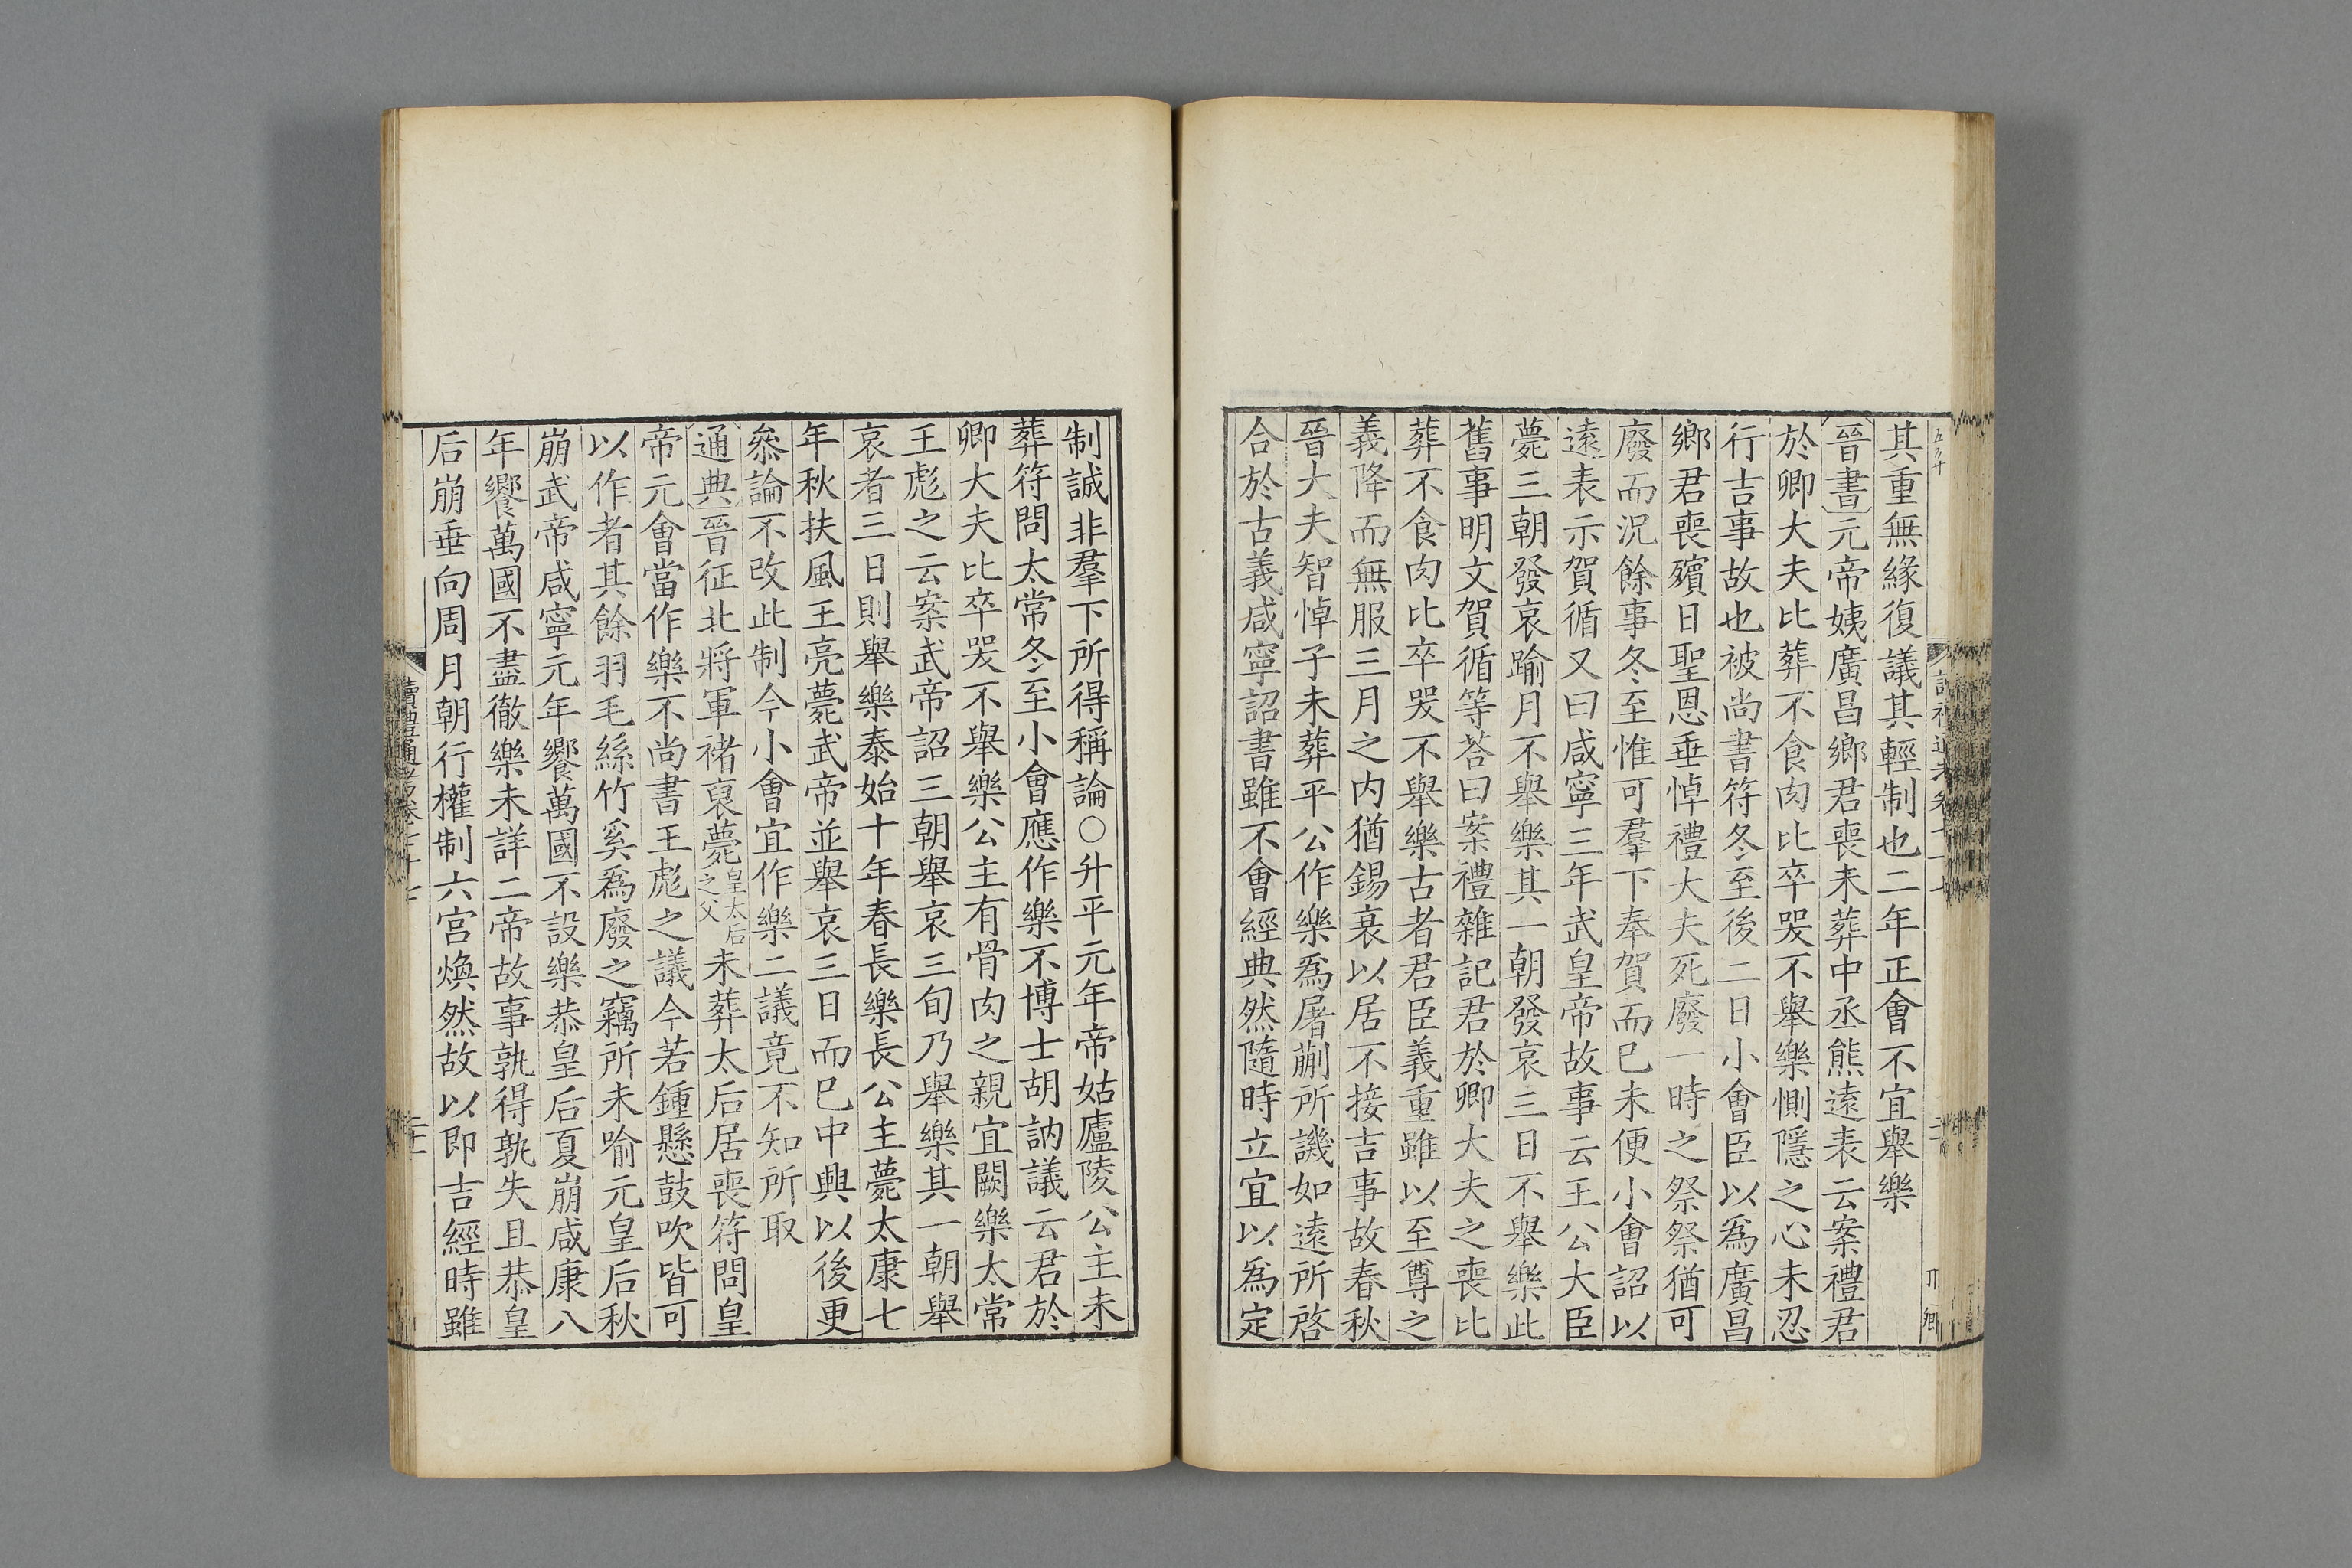 其重無緣復議其輕制也二年正會不宜舉樂
晉書元帝姨廣昌鄉君喪未葬中丞熊遠表云案禮君
於卿大夫比葬不食肉比卒哭不舉樂惻隱之心未忍
行吉事故也被尚書符冬至後二日小會臣以爲廣昌
鄉君喪殯日聖恩垂悼禮大夫死廢一時之祭祭猶可
廢而況餘事冬至惟可羣下奉賀而已未便小會詔以
遠表示賀循又曰咸寧三年武皇帝故事云王公大臣
薨三朝發哀踰月不舉樂其一朝發哀三日不舉樂此
舊事明文賀循等荅曰案禮雜記君於卿大夫之喪比
葬不食肉比卒哭不舉樂古者君臣義重雖以至尊之
義降而無服三月之內猶錫衰以居不接吉事故春秋
晉大夫智悼子未葬平公作樂爲屠蒯所譏如遠所啓
合於古義咸寧詔書雖不會經典然隨時立宜以爲定
制誠非羣下所得稱論○升平元年帝姑廬陵公主未
葬符問太常冬至小會應作樂不博士胡訥議云君於
卿大夫比卒哭不舉樂公主有骨肉之親宜闕樂太常
王彪之云案武帝詔三朝舉哀三旬乃舉樂其一朝舉
哀者三日則舉樂泰始十年春長樂長公主薨太康七
年秋扶風王亮薨武帝並舉哀三日而已中興以後更
叅論不改此制今小會宜作樂二議竟不知所取
通典晉征北將軍褚裒薨皇太后之父未葬太后居喪符問皇
帝元會當作樂不尚書王彪之議今若鍾懸鼓吹皆可
以作者其餘羽毛絲竹奚爲廢之竊所未喻元皇后秋
崩武帝咸寧元年饗萬國不設樂恭皇后夏崩咸康八
年饗萬國不盡徹樂未詳二帝故事孰得孰失且恭皇
后崩垂向周月朝行權制六宮煥然故以即吉經時雖
讀禮通考卷